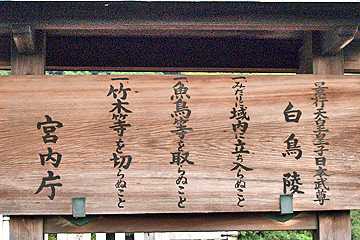 景行天皇皇子日本武尊
白鳥陵
一みだりに域内に立ち入らぬこと
一魚鳥等を取らぬこと
一竹木等を切らぬこと
宮内庁